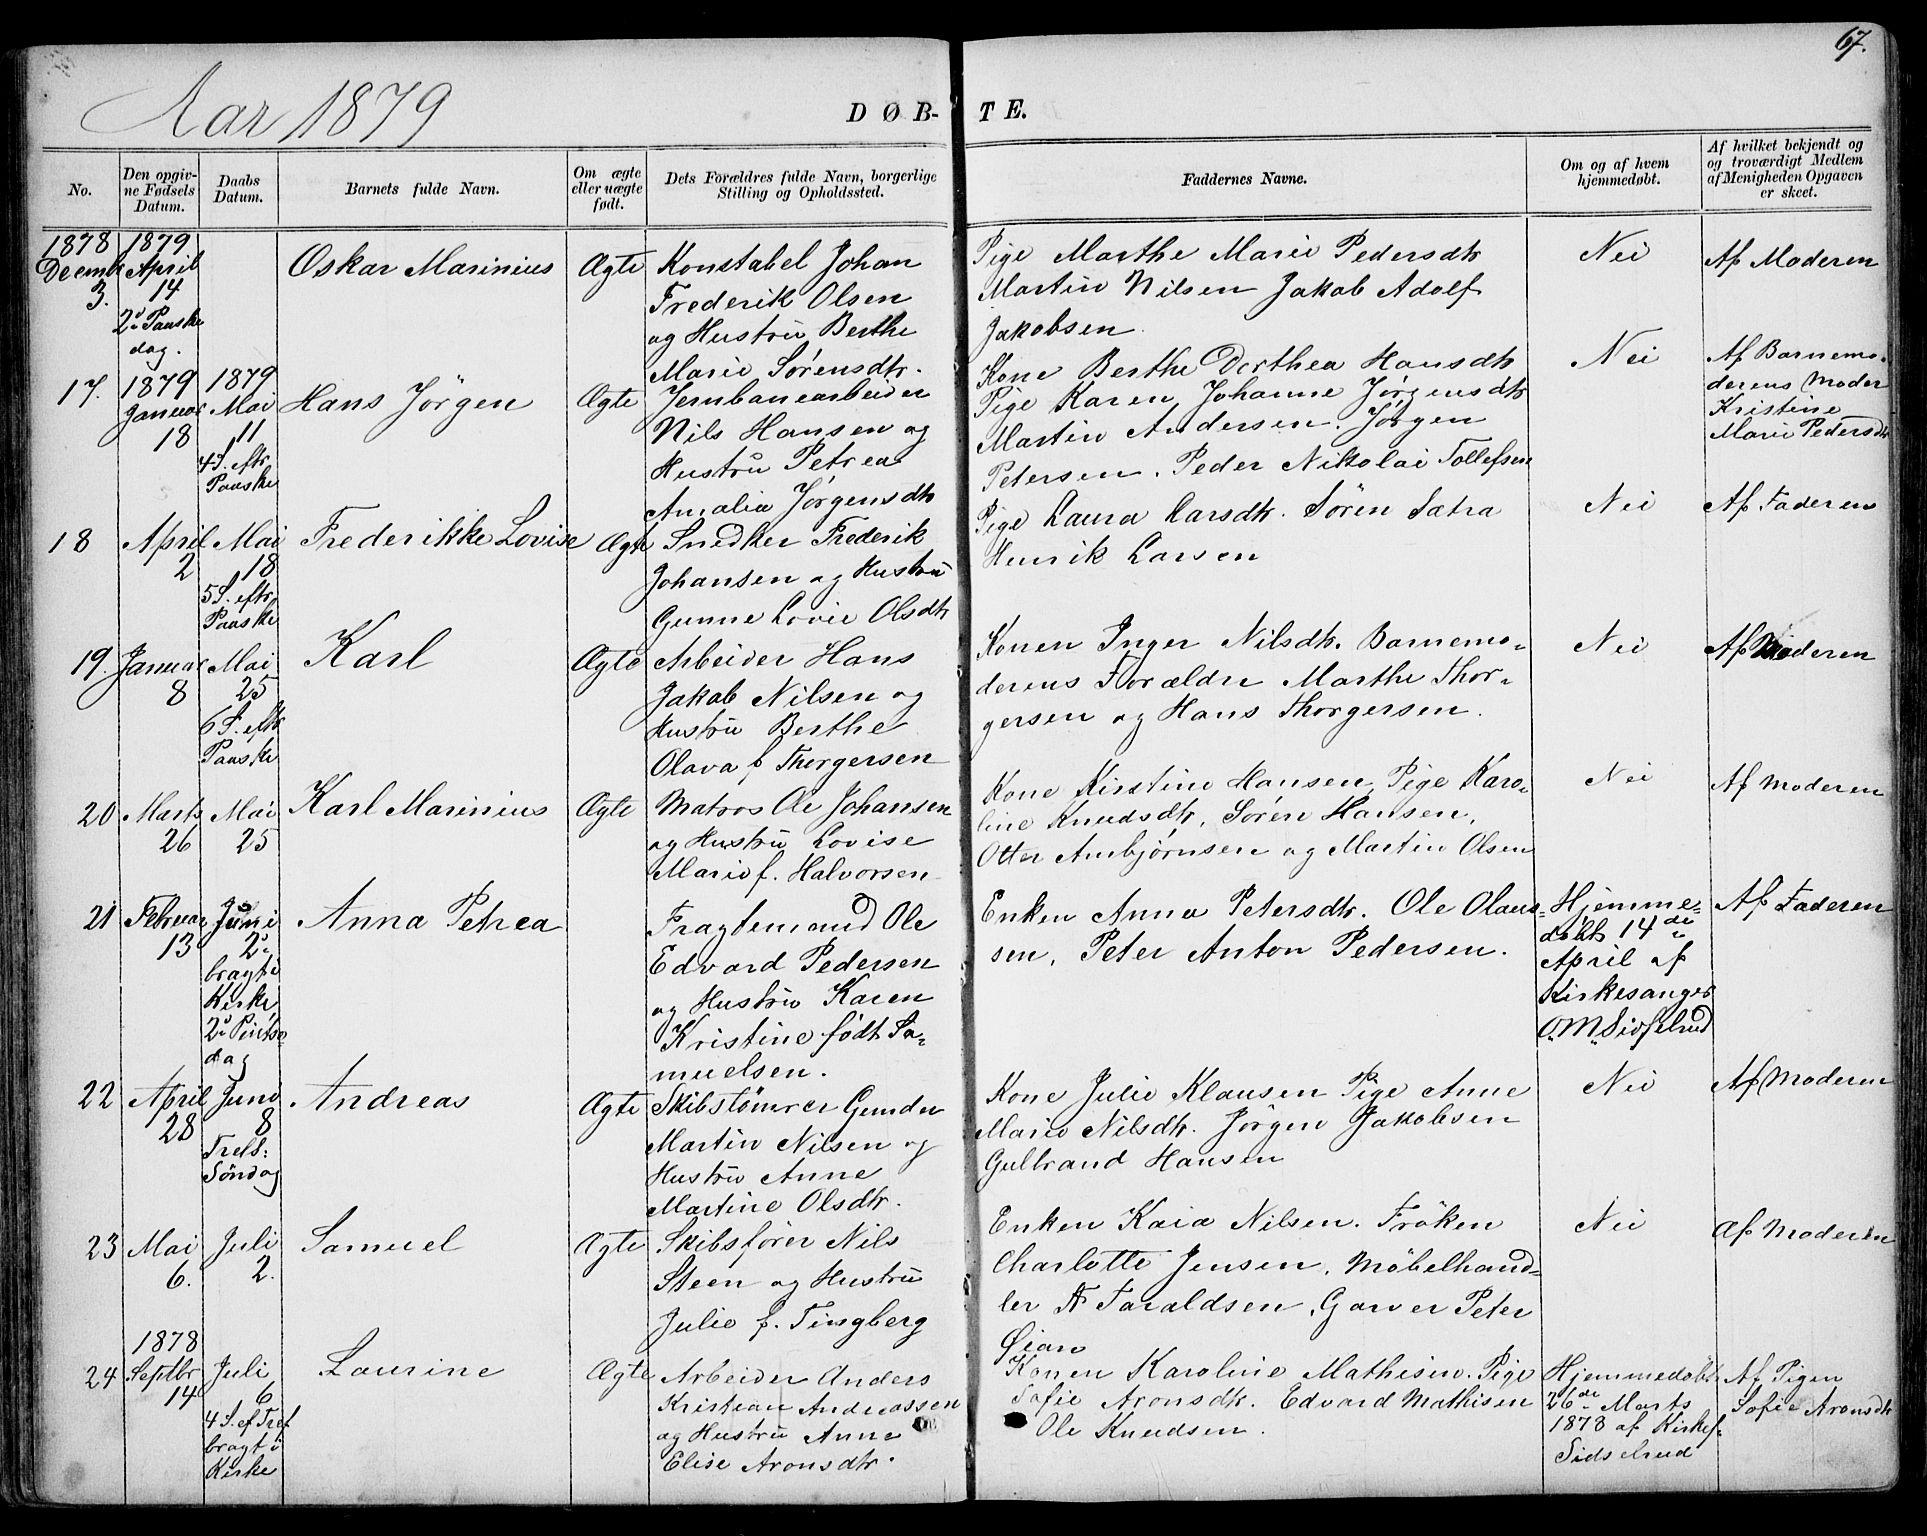 67.
Aar 1879
DØB-TE.
No.
Den opgiv-
ne Fødsels
Datum.
Daabs
Datum.
Barnets fulde Navn.
Om ægte
eller uægte
født.
Dets Forældres fulde Navn, borgerlige
Stilling og Opholdssted.
Faddernes Navne.
Om og af hvem
hjemmedøbt.
Af hvilket bekjendt og
og troværdigt Medlem
af Menigheden Opgaven
er skeet.
1878
Decmbr
3.
1879
April
14
2d Paaske
dag.
Oskar Marinius
Ægte
Konstabel Johan
Frederik Olsen
og Hustru Berthe
Marie Sørensdtr.
Pige Marthe Marie Pedersdtr
Martin Nilsen Jakob Adolf
Jakobsen
Nei
Af Moderen
17.
1879
Januar
18
1879
Mai
11
4 S. eftr
Paaske
Hans Jörgen
Ægte
Jernbanearbeider
Nils Hansen og
Hustru Petrea
Amalia Jørgensdtr
Kone Berthe Dorthea Hansdtr
Pige Karen Johanne Jørgensdtr
Martin Andersen. Jørgen
Petersen. Peder Nikolai Tollefsen
Nei
Af Barnemo-
derens Moder
Kristine
Marie Pedersdtr
18
April
2
Mai
18
5 S. eftr.
Paaske
Frederikke Lovise
Ægte
Snedker Frederik
Johansen og Hustru
Gunne Lovie Olsdtr
Pige Laura Larsdtr. Sören Satra
Henrik Larsen
Nei
Af Faderen
19.
Januar
8
Mai
25
6 S. eftr
Paaske
Karl
Ægte
Arbeider Hans
Jakob Nilsen og
Hustru Berthe
Olava f Thorgersen
Konen Inger Nilsdtr. Barnemo-
derens Forældre Marthe Thor-
gersen og Hans Thorgersen.
Nei
Af Moderen
20
Marts
26
Mai
25
Karl Marinius
Ægte
Matros Ole Johansen
og Hustru Lovise
Marie f. Halvorsen
Kone Kirstine Hansen Pige Karo-
line Knudsdtr, Sørén Hansen,
Otter Ambjørnsen og Martin Olsen
Nei
Af Moderen
21
Februar
13
Juni
2d
bragt i
Kirke
2d Pintse
dag
Anna Petrea
Fragtemand Ole
Edvard Pedersen
og Hustru Karen
Kristine født Sa-
muelsen.
Enken Anna Petersdtr. Ole Olaus-
sen, Peter Anton Pedersen.
Hjemme-
døbt 14de
April af
Kirkesanger
O. M. Sidselrud
Af Faderen
22
April
28
Juni
8
Trefs:
Söndag
Andreas
Ægte
Skibstømrer Gunder
Martin Nilsen og
Hustru Anne
Martine Olsdtr.
Kone Julie Klausen Pige Anne
Marie Nilsdtr. Jörgen Jakobsen
Gulbrand Hansen
Nei
Af Moderen
23
Mai
6.
Juli
2.
Samuel
Ægte
Skibsfører Nils
Steen og Hustru
Julie f. Tingberg
Enken Kaia Nilsen. Fröken
Charlotte Jensen, Møbelhand-
ler A Taraldsen, Garver Peter
Øian
Nei
Af Moderen
24
1878
Septbr
14
Juli
6
4 S. ef Tref
bragt i
Kirke
Laurine
Ægte
Arbeider Anders
Kristian Andreassen
og Hustru Anne
Elise Aronsdtr.
Konen Karoline Mathisen. Pige
Sofie Aronsdtr. Edvard Mathisen
Ole Knudsen.
Hjemmedøbt
26de Marts
1878 af Kirkes.
Sidselrud
Af Pigen
Sofie Aronsdtr